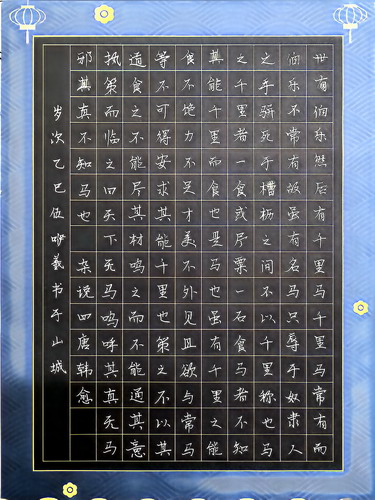 世有伯乐然后有千里马千里马常有而
伯乐不常有故虽有名马只辱于奴隶人
之手骈死于槽枥之间不以千里称也马
之千里者一食或尽粟一石食马者不知
其能千里而食也是马也虽有千里之能
食不饱力不足才美不外见且欲与常马
等不可得安求其能千里也策之不以其
道食之不能尽其材鸣之而不能通其意
执策而临之曰天下无马呜呼其真无马
邪其真不知马也 杂说四唐韩愈
岁次乙巳伍咿羲书于山城